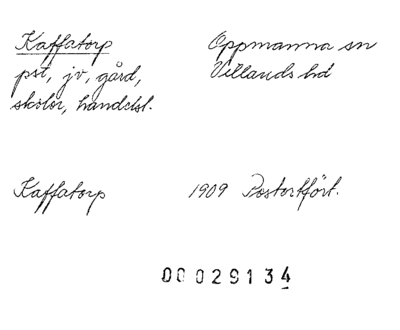 Kaffatorp
Oppmanna sn
pst, jv, gård,
Villands hd
skolor, handelsl.
Kaffatorp
1909 Postortfört.
00029134